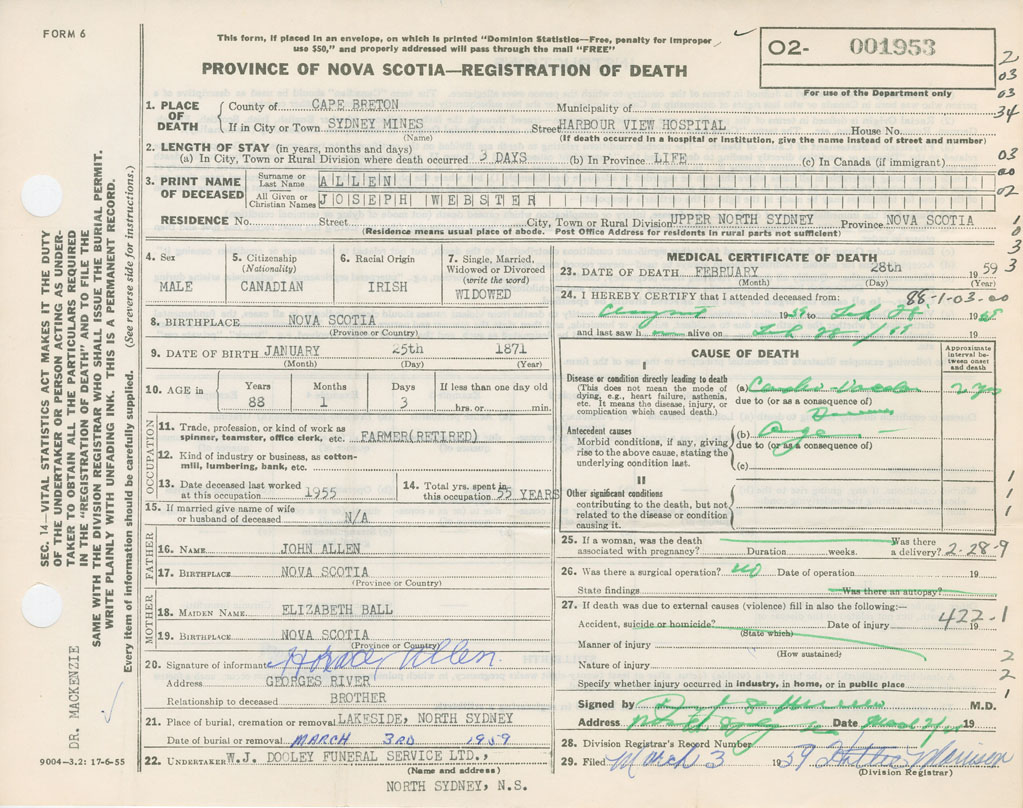 FORM 6
This form, if placed in an envelope, on which is printed "Dominion Statistics—Free, penalty for improper
use $50," and properly addressed will pass through the mail "FREE"
PROVINCE OF NOVA SCOTIA—REGISTRATION OF DEATH
02- 001953
For use of the Department only
2
03
03
34
1. PLACE OF DEATH
County of CAPE BRETON Municipality of
If in City or Town SYDNEY MINES Street HARBOUR VIEW HOSPITAL House No.
(Name) (If death occurred in a hospital or institution, give the name instead of street and number)
2. LENGTH OF STAY (in years, months and days)
(a) In City, Town or Rural Division where death occurred 3 DAYS (b) In Province LIFE (c) In Canada (if immigrant)
03
00
02
3. PRINT NAME OF DECEASED
Surname or Last Name ALLEN
All Given or Christian Names JOSEPH WEBSTER
RESIDENCE No. Street City, Town or Rural Division UPPER NORTH SYDNEY Province NOVA SCOTIA
(Residence means usual place of abode. Post Office Address for residents in rural parts not sufficient)
1
0
3
3
4. Sex
MALE
5. Citizenship
(Nationality)
CANADIAN
6. Racial Origin
IRISH
7. Single, Married,
Widowed or Divorced
(write the word)
WIDOWED
8. BIRTHPLACE NOVA SCOTIA
(Province or Country)
9. DATE OF BIRTH JANUARY 25th 1871
(Month) (Day) (Year)
10. AGE in
Years Months Days If less than one day old
88 1 3 hrs. or min.
OCCUPATION
11. Trade, profession, or kind of work as
spinner, teamster, office clerk, etc. FARMER(RETIRED)
12. Kind of industry or business, as cotton-
mill, lumbering, bank, etc.
13. Date deceased last worked
at this occupation 1955
14. Total yrs. spent in
this occupation 55 YEARS
15. If married give name of wife
or husband of deceased N/A
FATHER
16. NAME JOHN ALLEN
17. BIRTHPLACE NOVA SCOTIA
(Province or Country)
MOTHER
18. MAIDEN NAME ELIZABETH BALL
19. BIRTHPLACE NOVA SCOTIA
(Province or Country)
20. Signature of informant Horace Allen.
Address GEORGES RIVER
Relationship to deceased BROTHER
21. Place of burial, cremation or removal LAKESIDE, NORTH SYDNEY
Date of burial or removal MARCH 3RD 1959
22. UNDERTAKER W.J. DOOLEY FUNERAL SERVICE LTD.,
(Name and address)
NORTH SYDNEY, N.S.
MEDICAL CERTIFICATE OF DEATH
23. DATE OF DEATH FEBRUARY 28th 1959
(Month) (Day) (Year)
88-1-03-00
24. I HEREBY CERTIFY that I attended deceased from:
August 19 to Feb 28 19
and last saw h alive on Feb 28
CAUSE OF DEATH
Approximate
interval be-
tween onset
and death
I
Disease or condition directly leading to death
(This does not mean the mode of
dying, e.g., heart failure, asthenia,
etc. It means the disease, injury, or
complication which caused death.)
(a) Cardio Vascular 2 yrs
due to (or as a consequence of)
Disease
Antecedent causes
Morbid conditions, if any, giving
rise to the above cause, stating the
underlying condition last.
(b) Age
due to (or as a consequence of)
(c)
II
Other significant conditions
contributing to the death, but not
related to the disease or condition
causing it.
1
1
1
25. If a woman, was the death
associated with pregnancy? Duration weeks. Was there
a delivery? 2-28-9
26. Was there a surgical operation? NO Date of operation 19
State findings Was there an autopsy?
27. If death was due to external causes (violence) fill in also the following:—
422-1
Accident, suicide or homicide? Date of injury 19
(State which)
Manner of injury
(How sustained)
Nature of injury
Specify whether injury occurred in industry, in home, or in public place
2
2
1
Signed by M.D.
Address North Sydney Date March 2/ 19
28. Division Registrar's Record Number
29. Filed March 3 1959 Morrison
(Division Registrar)
SEC. 14—VITAL STATISTICS ACT MAKES IT THE DUTY
OF THE UNDERTAKER OR PERSON ACTING AS UNDER-
TAKER TO OBTAIN ALL THE PARTICULARS REQUIRED
IN THE "REGISTRATION OF DEATH" AND TO FILE THE
SAME WITH THE DIVISION REGISTRAR WHO SHALL ISSUE THE BURIAL PERMIT.
WRITE PLAINLY WITH UNFADING INK. THIS IS A PERMANENT RECORD.
Every item of information should be carefully supplied. (See reverse side for instructions.)
DR. MACKENZIE
9004-3.2: 17-6-55